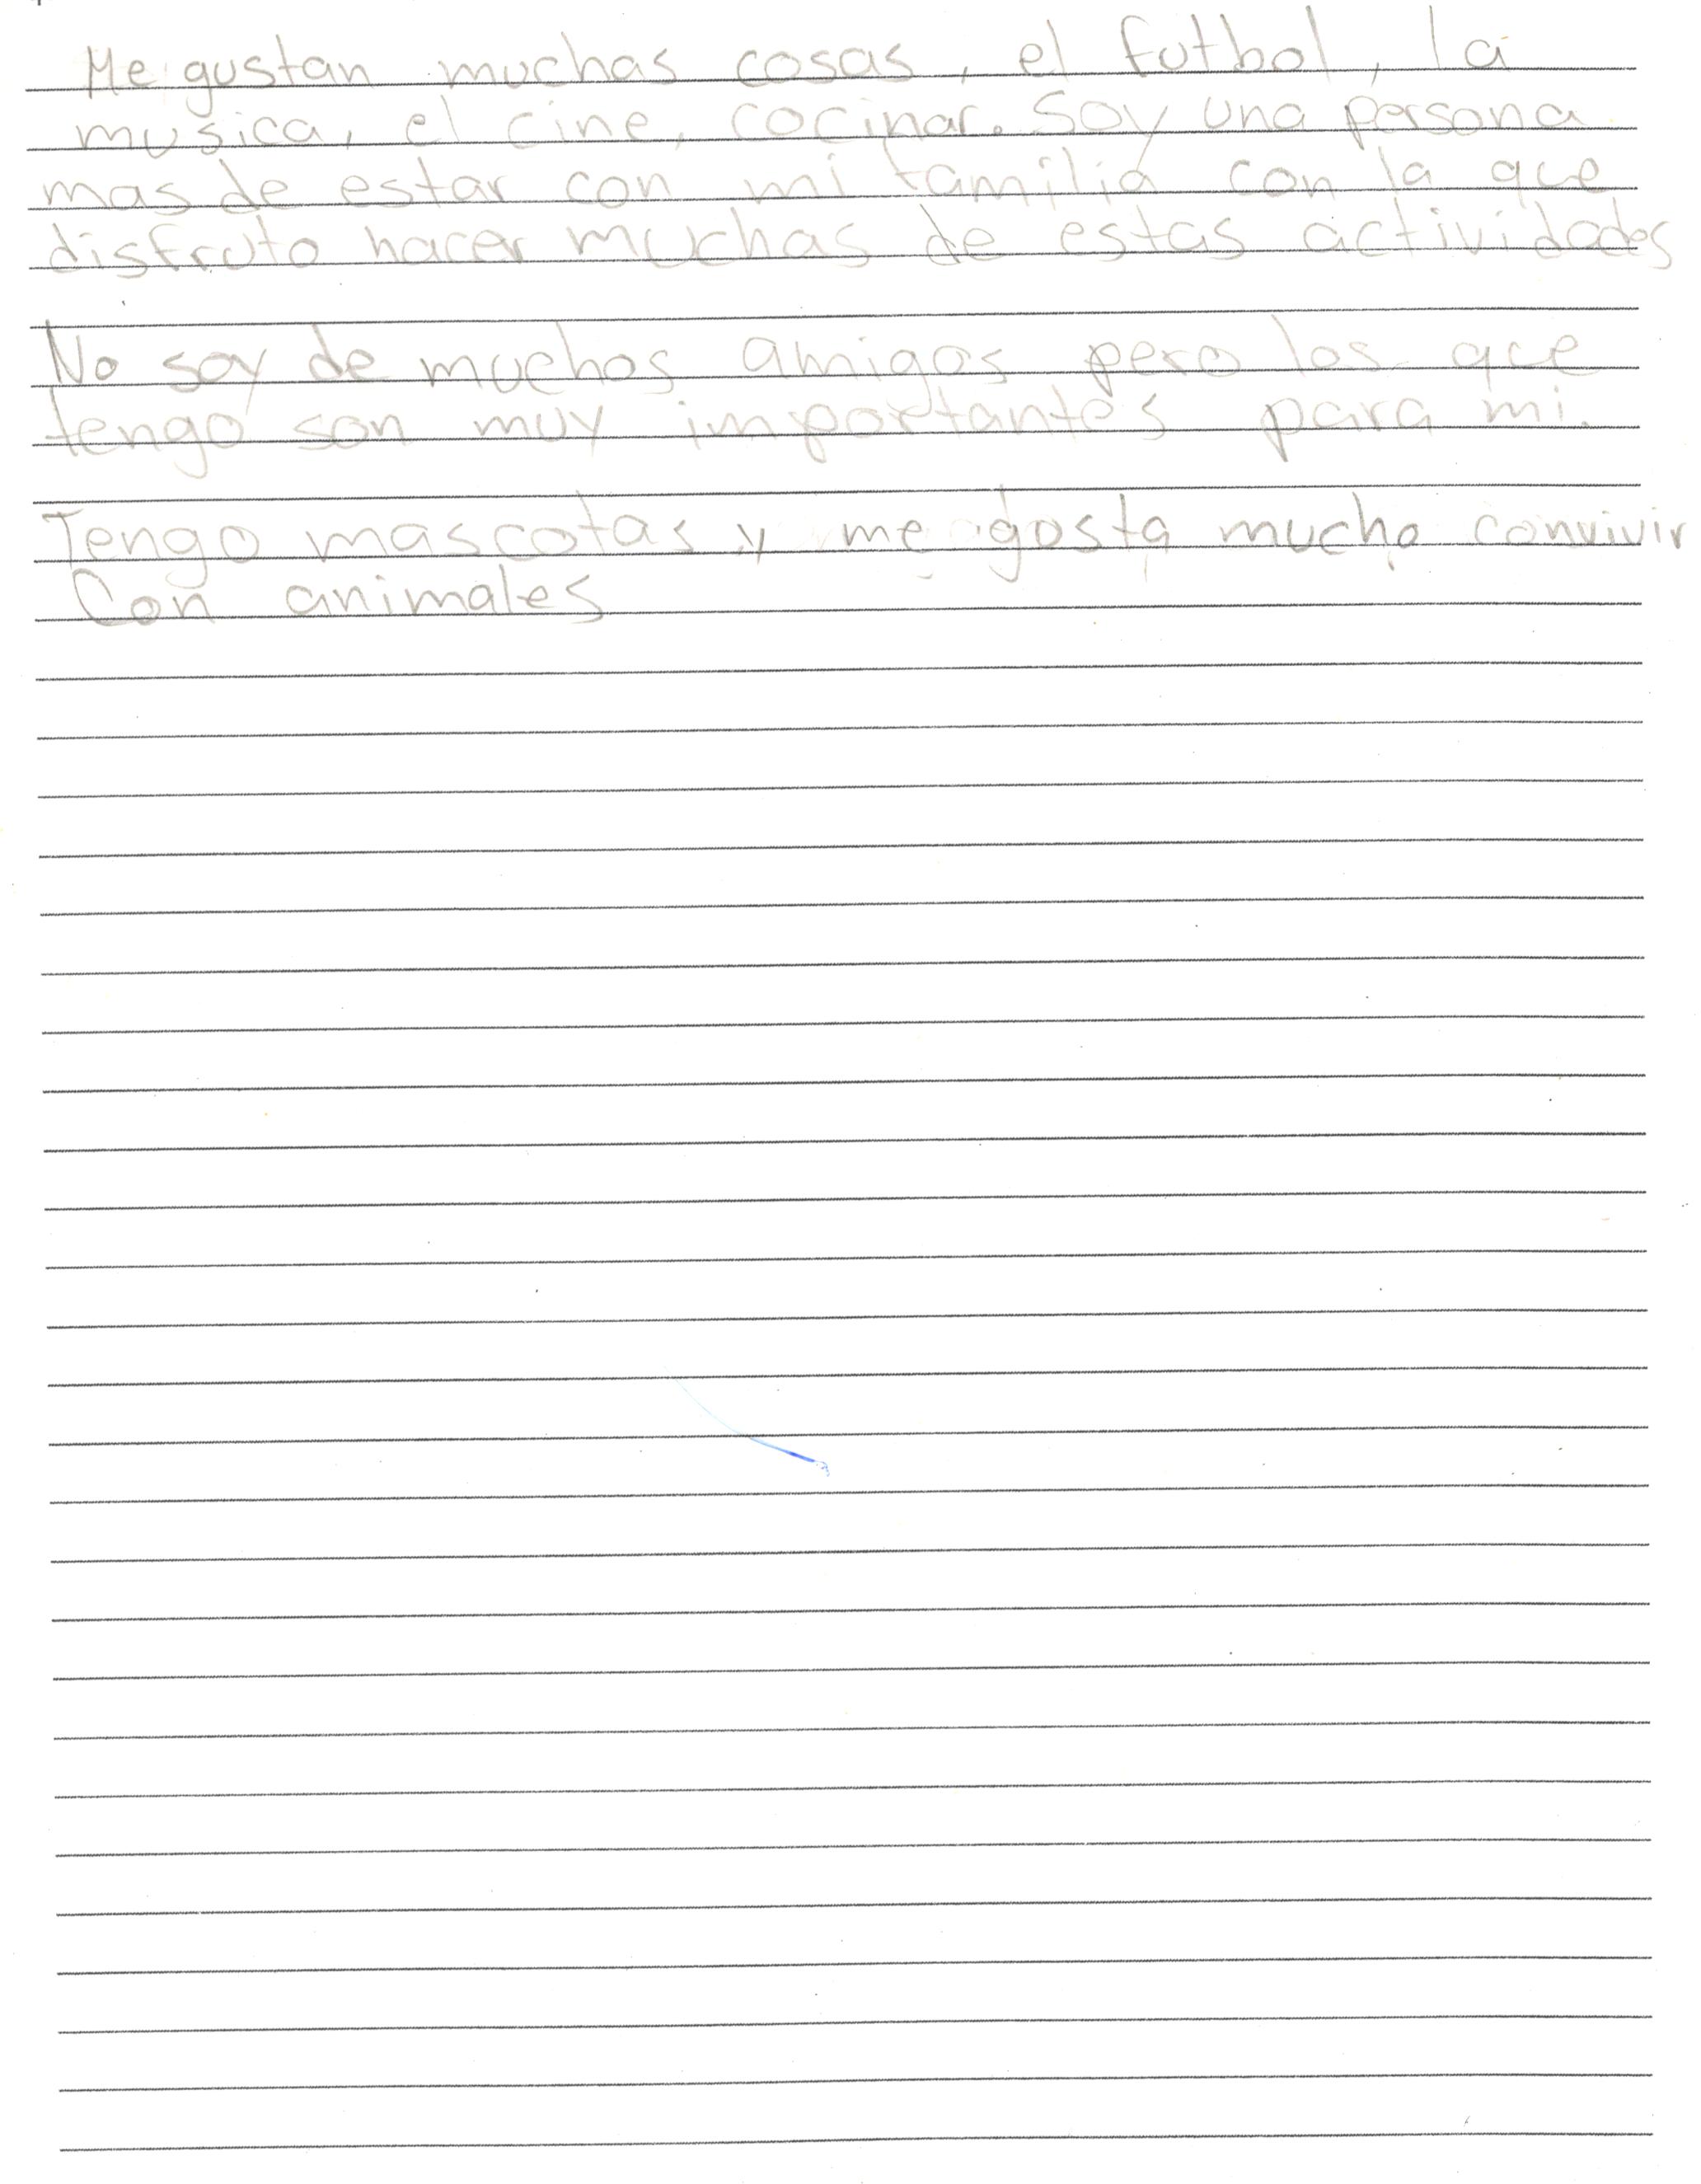 Me gustan muchas cosas, el futbol, la
musica, el cine, cocinar. Soy una persona
mas de estar con mi familia con la que
disfruto hacer muchas de estas actividades
No soy de muchos amigos pero los que
tengo son muy importantes para mi.
Tengo mascotas y me gusta mucho convivir
Con animales